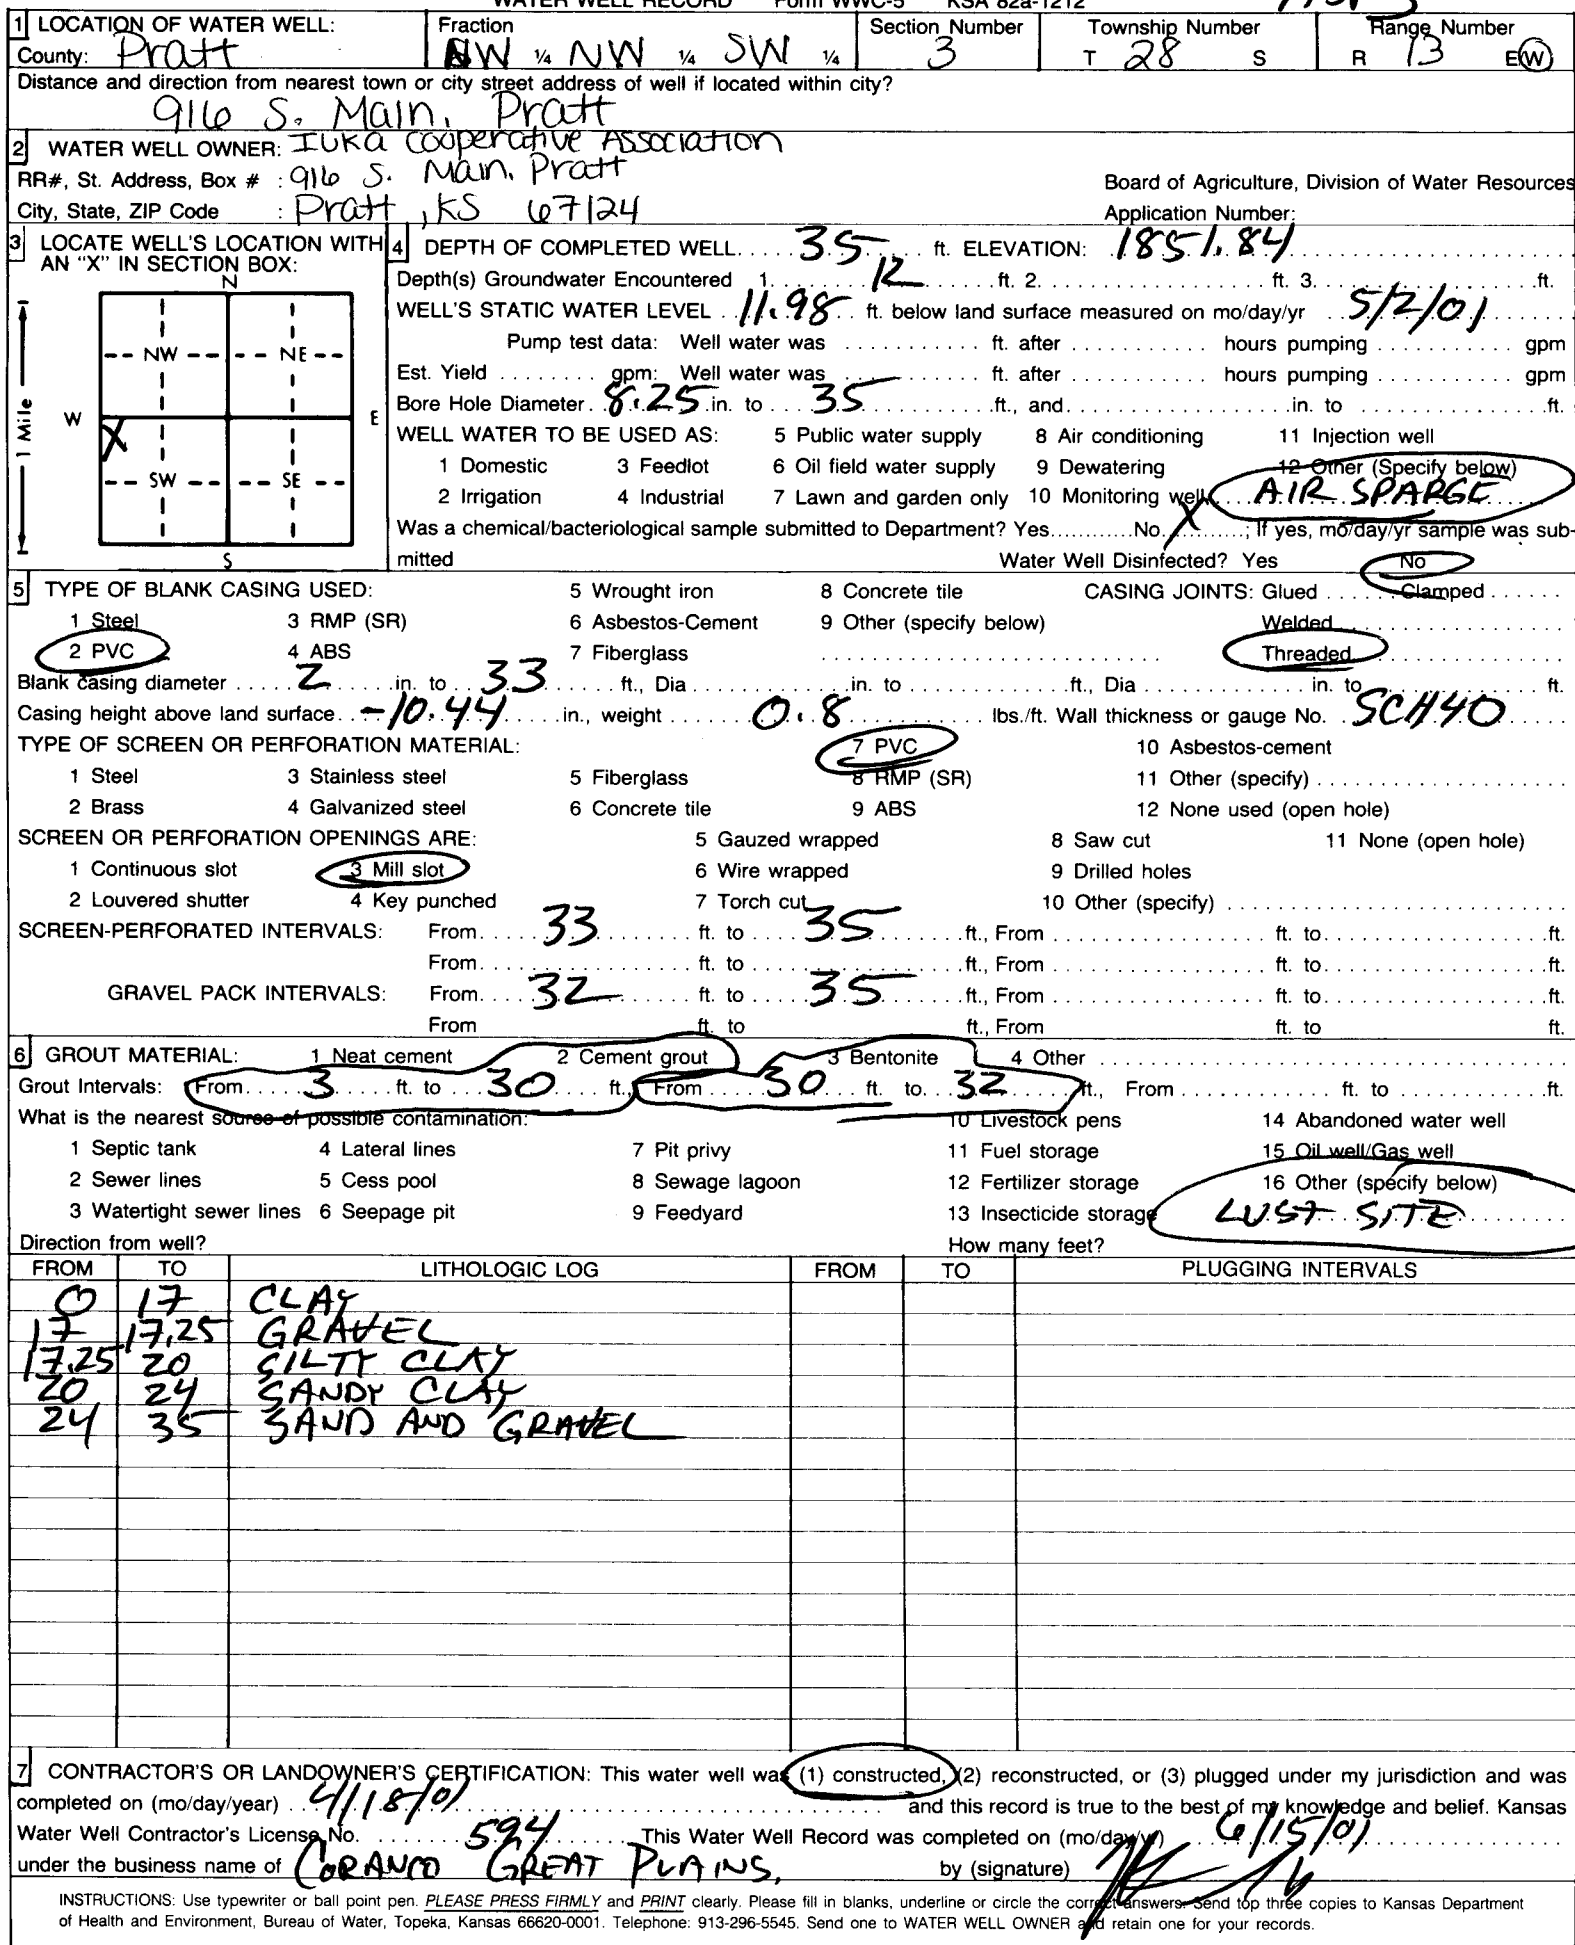 WATER WELL RECORD Form WWC-5 KSA 82a-1212
1 LOCATION OF WATER WELL: Fraction Section Number Township Number Range Number
County: Pratt NW ¼ NW ¼ SW ¼ 3 T 28 S R 13 E(W)
Distance and direction from nearest town or city street address of well if located within city?
916 S. Main, Pratt
2 WATER WELL OWNER: Iuka Cooperative Association
RR#, St. Address, Box # : 916 S. Main, Pratt Board of Agriculture, Division of Water Resources
City, State, ZIP Code : Pratt, KS 67124 Application Number:
3 LOCATE WELL'S LOCATION WITH AN "X" IN SECTION BOX:
N
NW NE
W X E
SW SE
S
1 Mile
4 DEPTH OF COMPLETED WELL 35 ft. ELEVATION: 1851.84
Depth(s) Groundwater Encountered 1. 12 ft. 2. ft. 3. ft.
WELL'S STATIC WATER LEVEL 11.98 ft. below land surface measured on mo/day/yr 5/2/01
Pump test data: Well water was ft. after hours pumping gpm
Est. Yield gpm: Well water was ft. after hours pumping gpm
Bore Hole Diameter 8.25 in. to 35 ft., and in. to ft.
WELL WATER TO BE USED AS: 5 Public water supply 8 Air conditioning 11 Injection well
1 Domestic 3 Feedlot 6 Oil field water supply 9 Dewatering 12 Other (Specify below)
2 Irrigation 4 Industrial 7 Lawn and garden only 10 Monitoring well AIR SPARGE
Was a chemical/bacteriological sample submitted to Department? Yes No X ; If yes, mo/day/yr sample was sub-
mitted Water Well Disinfected? Yes No
5 TYPE OF BLANK CASING USED: 5 Wrought iron 8 Concrete tile CASING JOINTS: Glued Clamped
1 Steel 3 RMP (SR) 6 Asbestos-Cement 9 Other (specify below) Welded
2 PVC 4 ABS 7 Fiberglass Threaded
Blank casing diameter 2 in. to 33 ft., Dia in. to ft., Dia in. to ft.
Casing height above land surface -10.44 in., weight 0.8 lbs./ft. Wall thickness or gauge No. SCH40
TYPE OF SCREEN OR PERFORATION MATERIAL: 7 PVC 10 Asbestos-cement
1 Steel 3 Stainless steel 5 Fiberglass 8 RMP (SR) 11 Other (specify)
2 Brass 4 Galvanized steel 6 Concrete tile 9 ABS 12 None used (open hole)
SCREEN OR PERFORATION OPENINGS ARE: 5 Gauzed wrapped 8 Saw cut 11 None (open hole)
1 Continuous slot 3 Mill slot 6 Wire wrapped 9 Drilled holes
2 Louvered shutter 4 Key punched 7 Torch cut 10 Other (specify)
SCREEN-PERFORATED INTERVALS: From 33 ft. to 35 ft., From ft. to ft.
From ft. to ft., From ft. to ft.
GRAVEL PACK INTERVALS: From 32 ft. to 35 ft., From ft. to ft.
From ft. to ft., From ft. to ft.
6 GROUT MATERIAL: 1 Neat cement 2 Cement grout 3 Bentonite 4 Other
Grout Intervals: From 3 ft. to 30 ft., From 30 ft. to 32 ft., From ft. to ft.
What is the nearest source of possible contamination: 10 Livestock pens 14 Abandoned water well
1 Septic tank 4 Lateral lines 7 Pit privy 11 Fuel storage 15 Oil well/Gas well
2 Sewer lines 5 Cess pool 8 Sewage lagoon 12 Fertilizer storage 16 Other (specify below)
3 Watertight sewer lines 6 Seepage pit 9 Feedyard 13 Insecticide storage LUST SITE
Direction from well? How many feet?
FROM TO LITHOLOGIC LOG FROM TO PLUGGING INTERVALS
0 17 CLAY
17 17.25 GRAVEL
17.25 20 SILTY CLAY
20 24 SANDY CLAY
24 35 SAND AND GRAVEL
7 CONTRACTOR'S OR LANDOWNER'S CERTIFICATION: This water well was (1) constructed, (2) reconstructed, or (3) plugged under my jurisdiction and was
completed on (mo/day/year) 4/18/01 and this record is true to the best of my knowledge and belief. Kansas
Water Well Contractor's License No. 594 This Water Well Record was completed on (mo/day/yr) 6/15/01
under the business name of CORANCO GREAT PLAINS, by (signature)
INSTRUCTIONS: Use typewriter or ball point pen. PLEASE PRESS FIRMLY and PRINT clearly. Please fill in blanks, underline or circle the correct answers. Send top three copies to Kansas Department
of Health and Environment, Bureau of Water, Topeka, Kansas 66620-0001. Telephone: 913-296-5545. Send one to WATER WELL OWNER and retain one for your records.